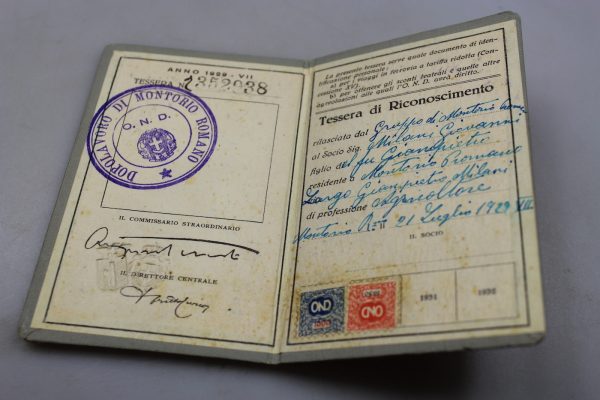 ANNO 1929 - VII
TESSERA N. 352938
DOPOLAVORO DI MONTORIO ROMANO
O. N. D.
IL COMMISSARIO STRAORDINARIO
IL DIRETTORE CENTRALE
La presente tessera serve quale documento di iden-
tificazione personale:
a) per i viaggi in ferrovia a tariffa ridotta (Con-
cessione XV);
b) per ottenere gli sconti teatrali e quelle altre
agevolazioni alle quali l'O. N. D. avrà diritto.
Tessera di Riconoscimento
rilasciata dal Gruppo di Montorio Romano
al Socio Sig. Milani Giovanni
figlio del fu Giampietro
residente a Montorio Romano
Largo Giampietro Milani
di professione Agricoltore
Montorio R. lì 21 Luglio 1929 VII
IL SOCIO
OND
OND
1931
1932